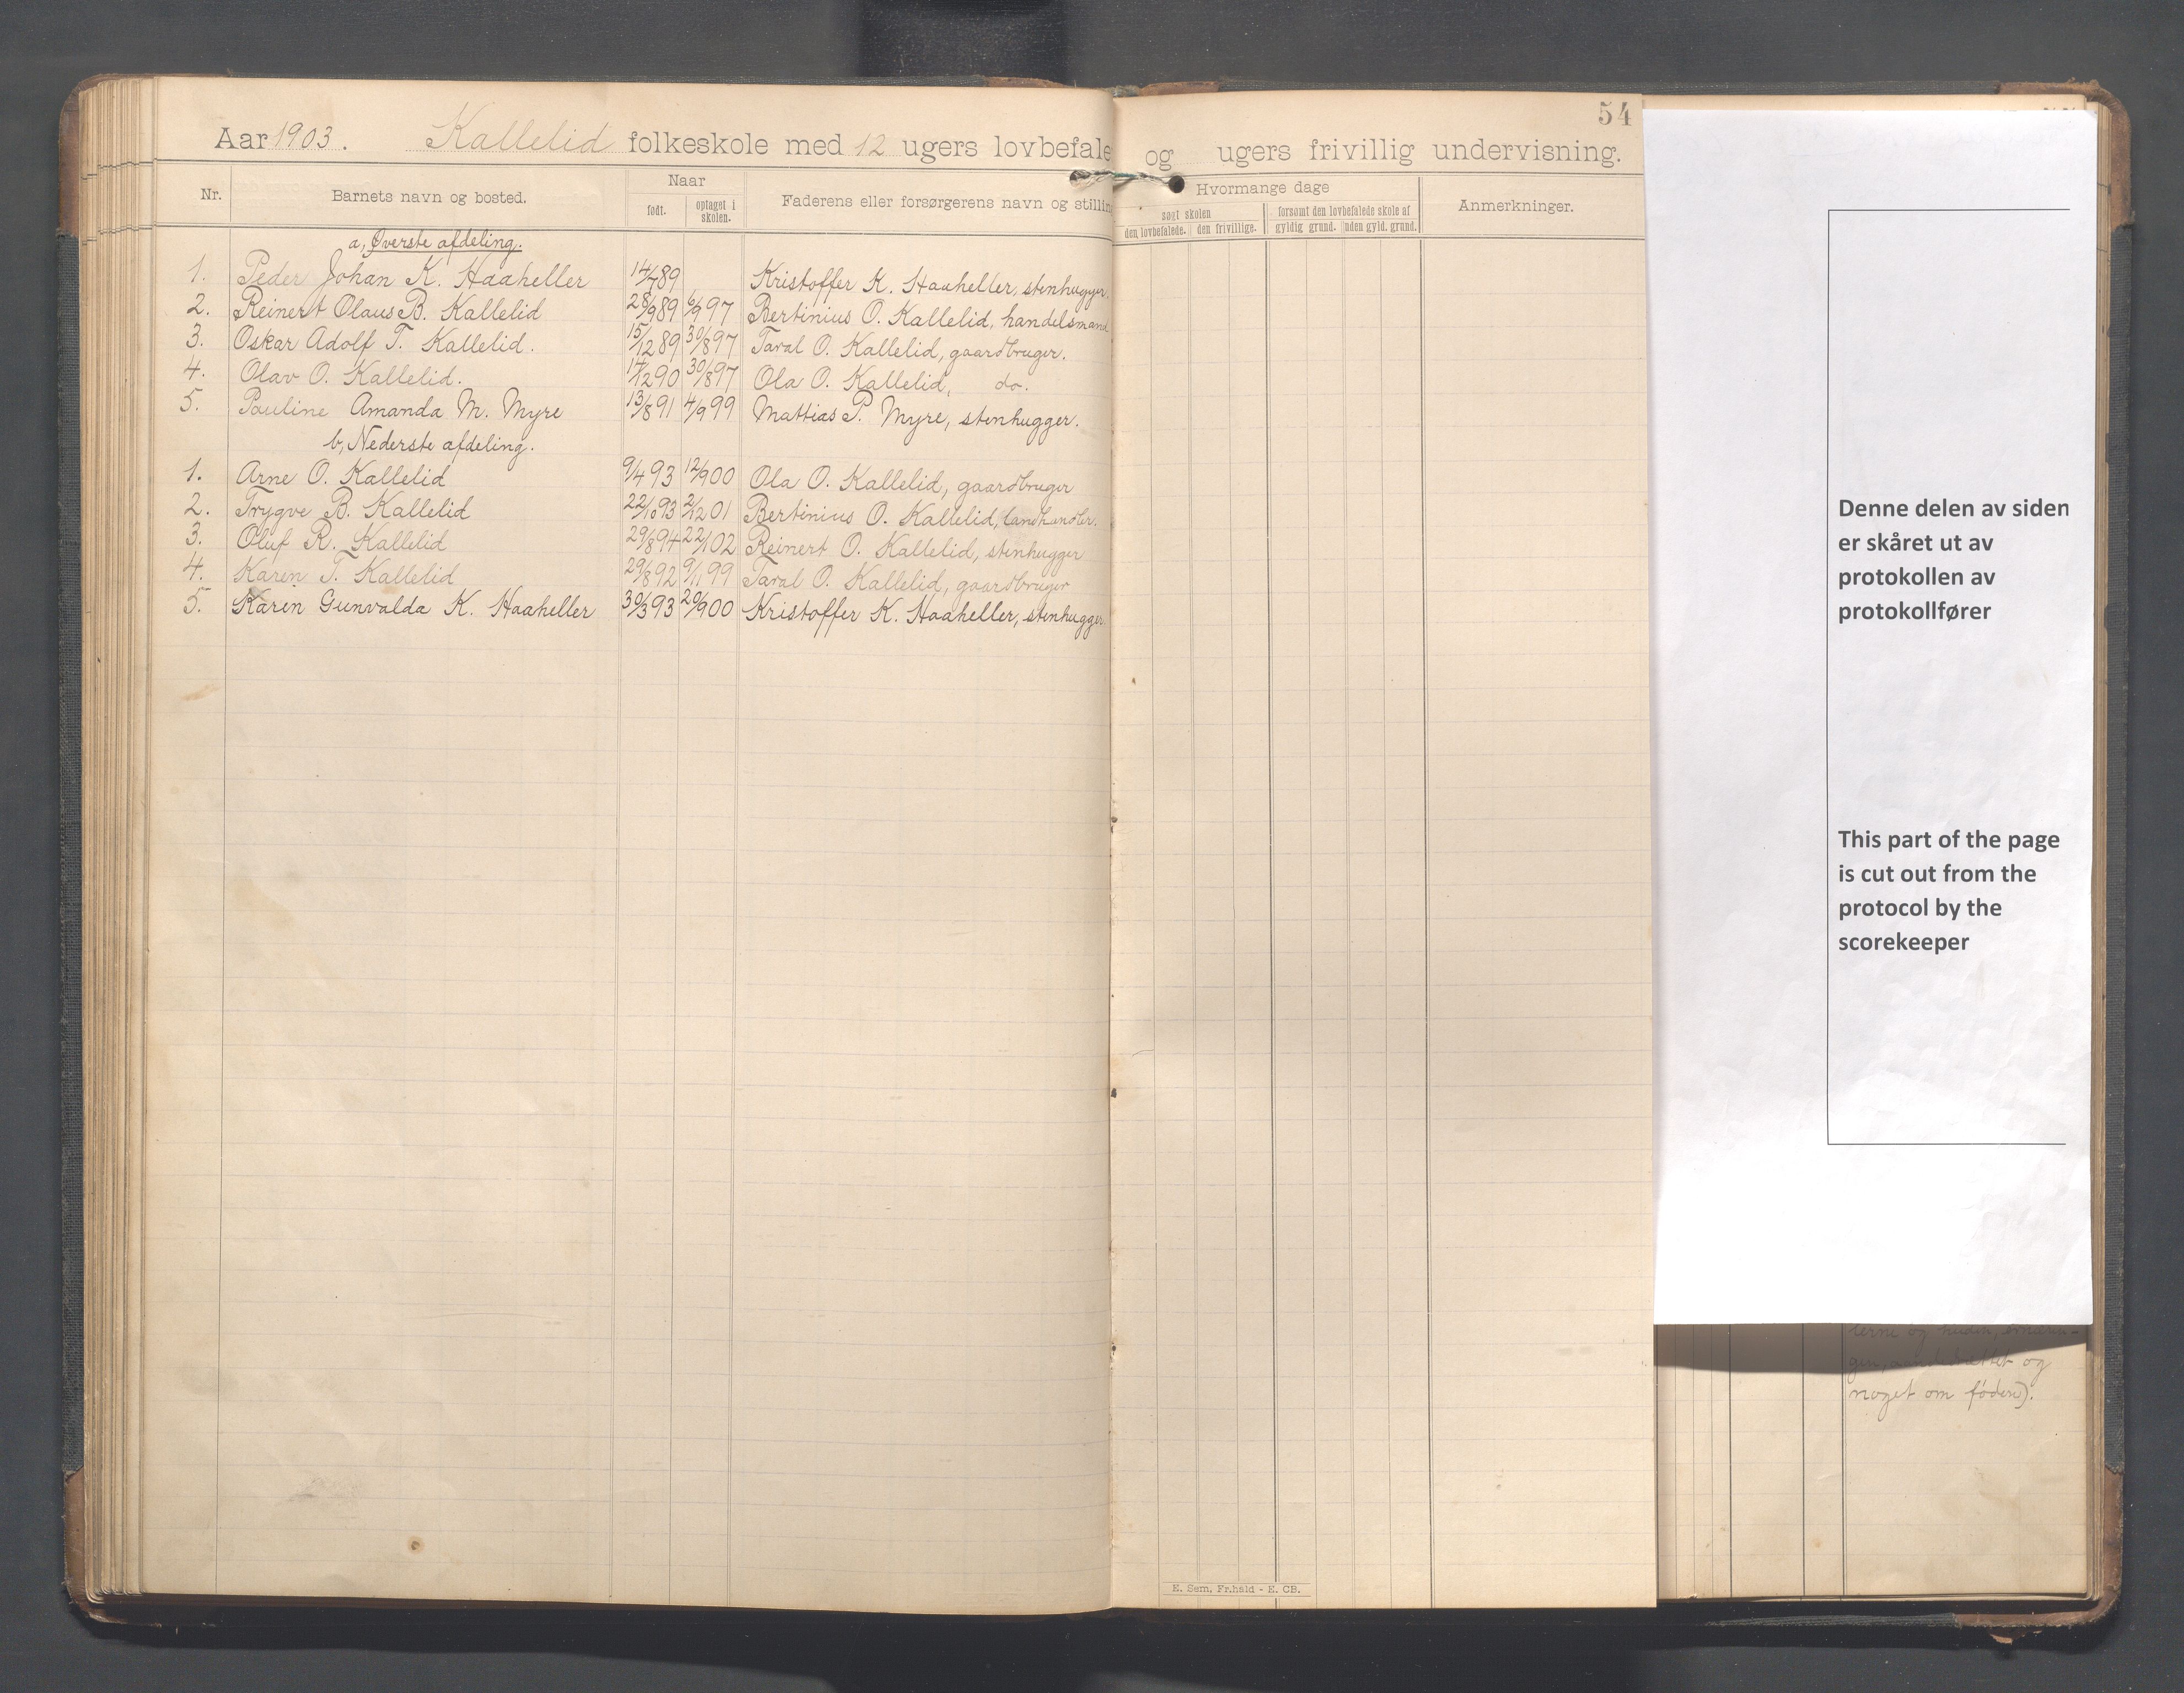 54
Aar 1903. Kallelid folkeskole med 12 ugers lovbefale og ugers frivillig undervisning.
Nr. Barnets navn og bosted. Naar født. optaget i skolen. Faderens eller forsørgerens navn og stillin Hvormange dage søgt skolen den lovbefalede. den frivillige. forsømt den lovbefalede skole af gyldig grund. uden gyld. grund. Anmerkninger.
a, Øverste afdeling.
1. Peder Johan K. Haaheller 14/7 89 Kristoffer K. Haaheller, stenhugger.
2. Reinert Olaus B. Kallelid 28/9 89 6/9 97 Bertinius O. Kallelid, handelsmand
3. Oskar Adolf T. Kallelid. 15/12 89 30/8 97 Taral O. Kallelid, gaardbruger.
4. Olav O. Kallelid. 17/12 90 30/8 97 Ola O. Kallelid, do.
5. Pauline Amanda M. Myre 13/8 91 4/9 99 Mattias P. Myre, stenhugger.
b, Nederste afdeling.
1. Arne O. Kallelid 9/4 93 12/9 00 Ola O. Kallelid, gaardbruger
2. Trygve B. Kallelid 22/10 93 2/12 01 Bertinius O. Kallelid, landhandler.
3. Oluf R. Kallelid 29/8 94 22/1 02 Reinert O. Kallelid, stenhugger
4. Karen T. Kallelid 29/8 92 9/11 99 Taral O. Kallelid, gaardbruger
5. Karen Gunvalda K. Haaheller 30/3 93 20/9 00 Kristoffer K. Haaheller, stenhugger.
E. Sem, Fr.hald - E. CB.
Denne delen av siden
er skåret ut av
protokollen av
protokollfører
This part of the page
is cut out from the
protocol by the
scorekeeper
og
noget om føden).